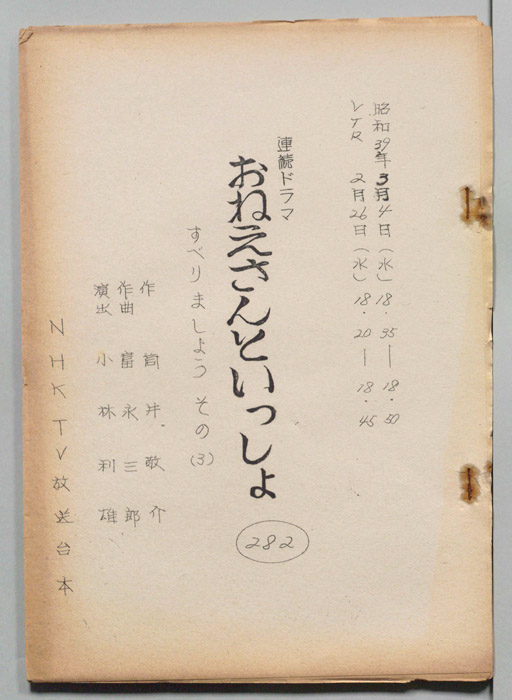 昭和39年3月4日(水)18.35―18.50
VTR 2月26日(水)18.20―18.45
連続ドラマ
おねえさんといっしょ
282
すべりましょう その(3)
作 筒井敬介
作曲 冨永三郎
演出 小林利雄
NHKTV放送台本